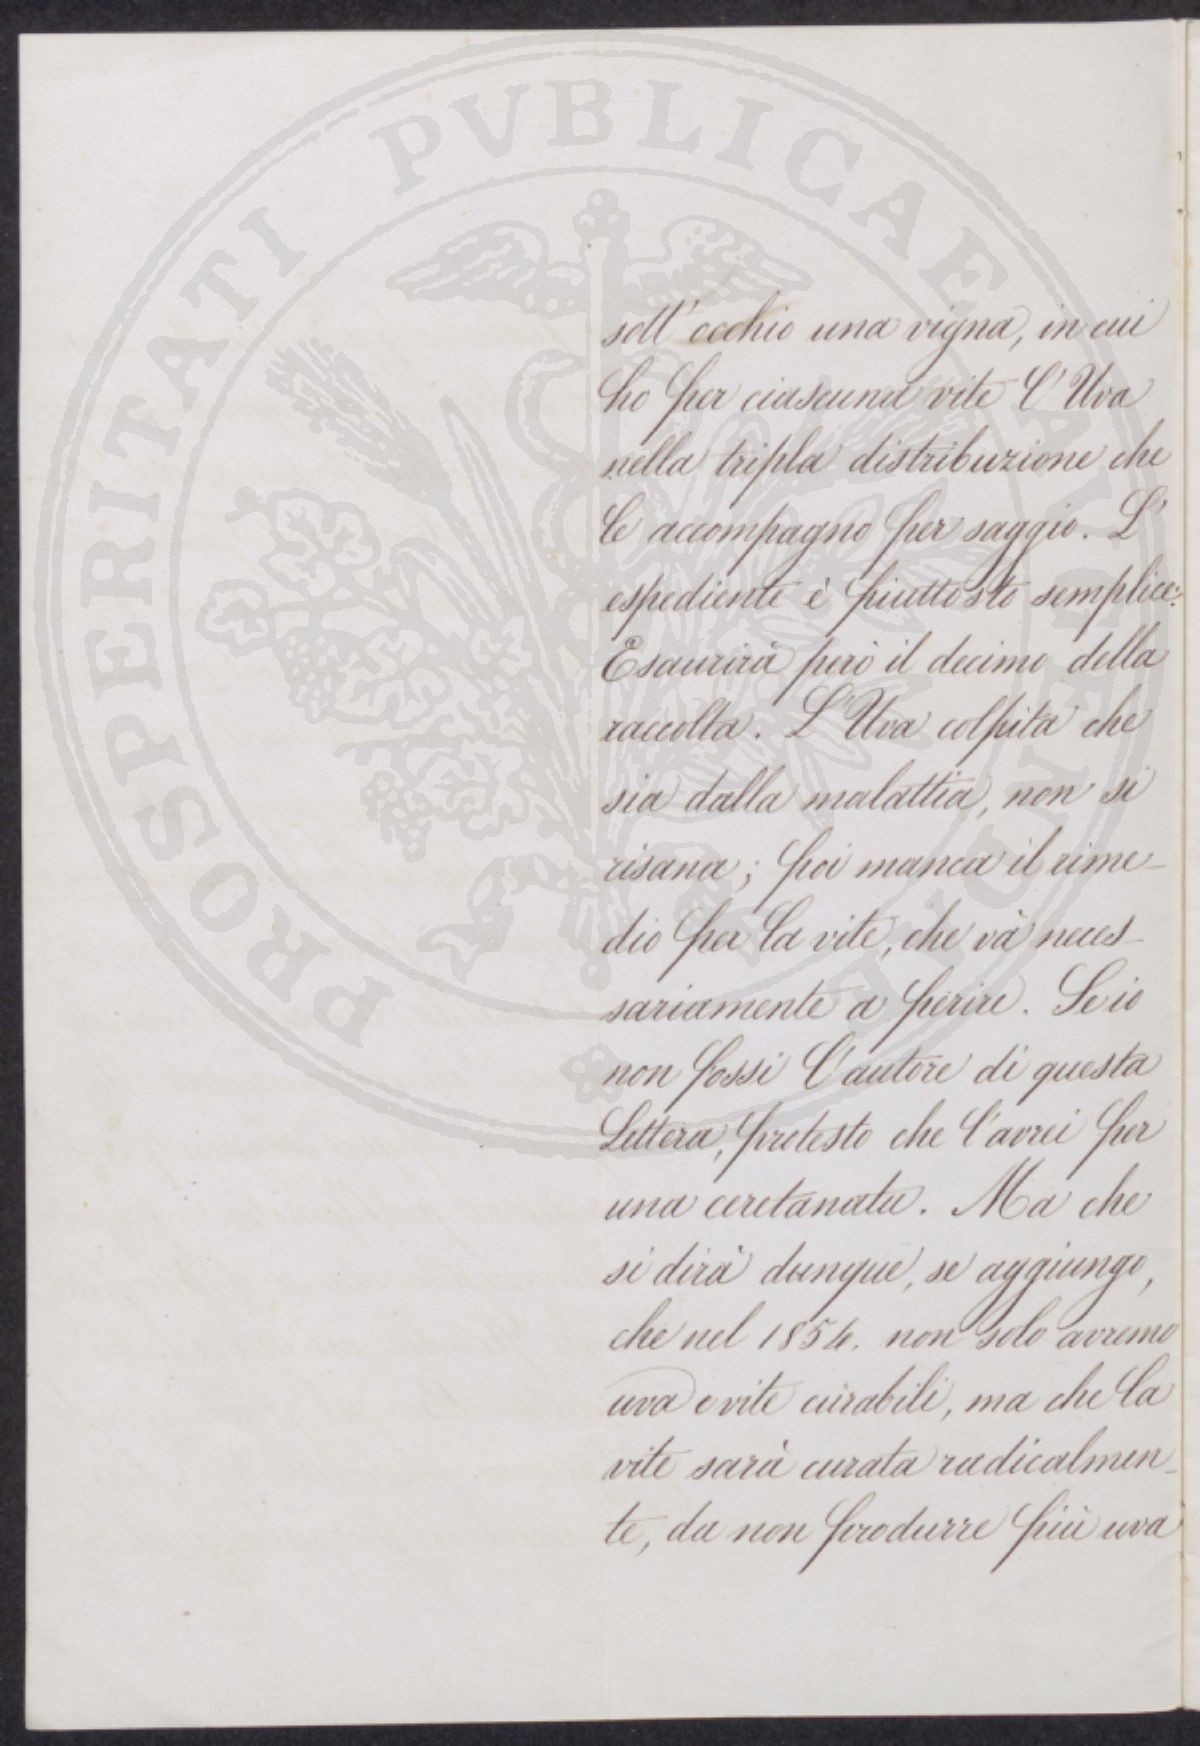 PROSPERITATI PVBLICAE AVGENDAE
sott' occhio una vigna, in cui
ho per ciascuna vite l' Uva
nella tripla distribuzione che
le accompagno per saggio. L'
espediente è piuttosto semplice:
Esaurirà però il decimo della
raccolta. L' Uva colpita che
sia dalla malattia, non si
risana; poi manca il rime-
dio per la vite, che và neces-
sariamente a perire. Se io
non fossi l' autore di questa
Lettera, protesto che l' avrei per
una ceretanata. Ma che
si dirà dunque, se aggiungo,
che nel 1854. non solo avremo
uva e vite curabili, ma che la
vite sarà curata radicalmen-
te, da non produrre più uva